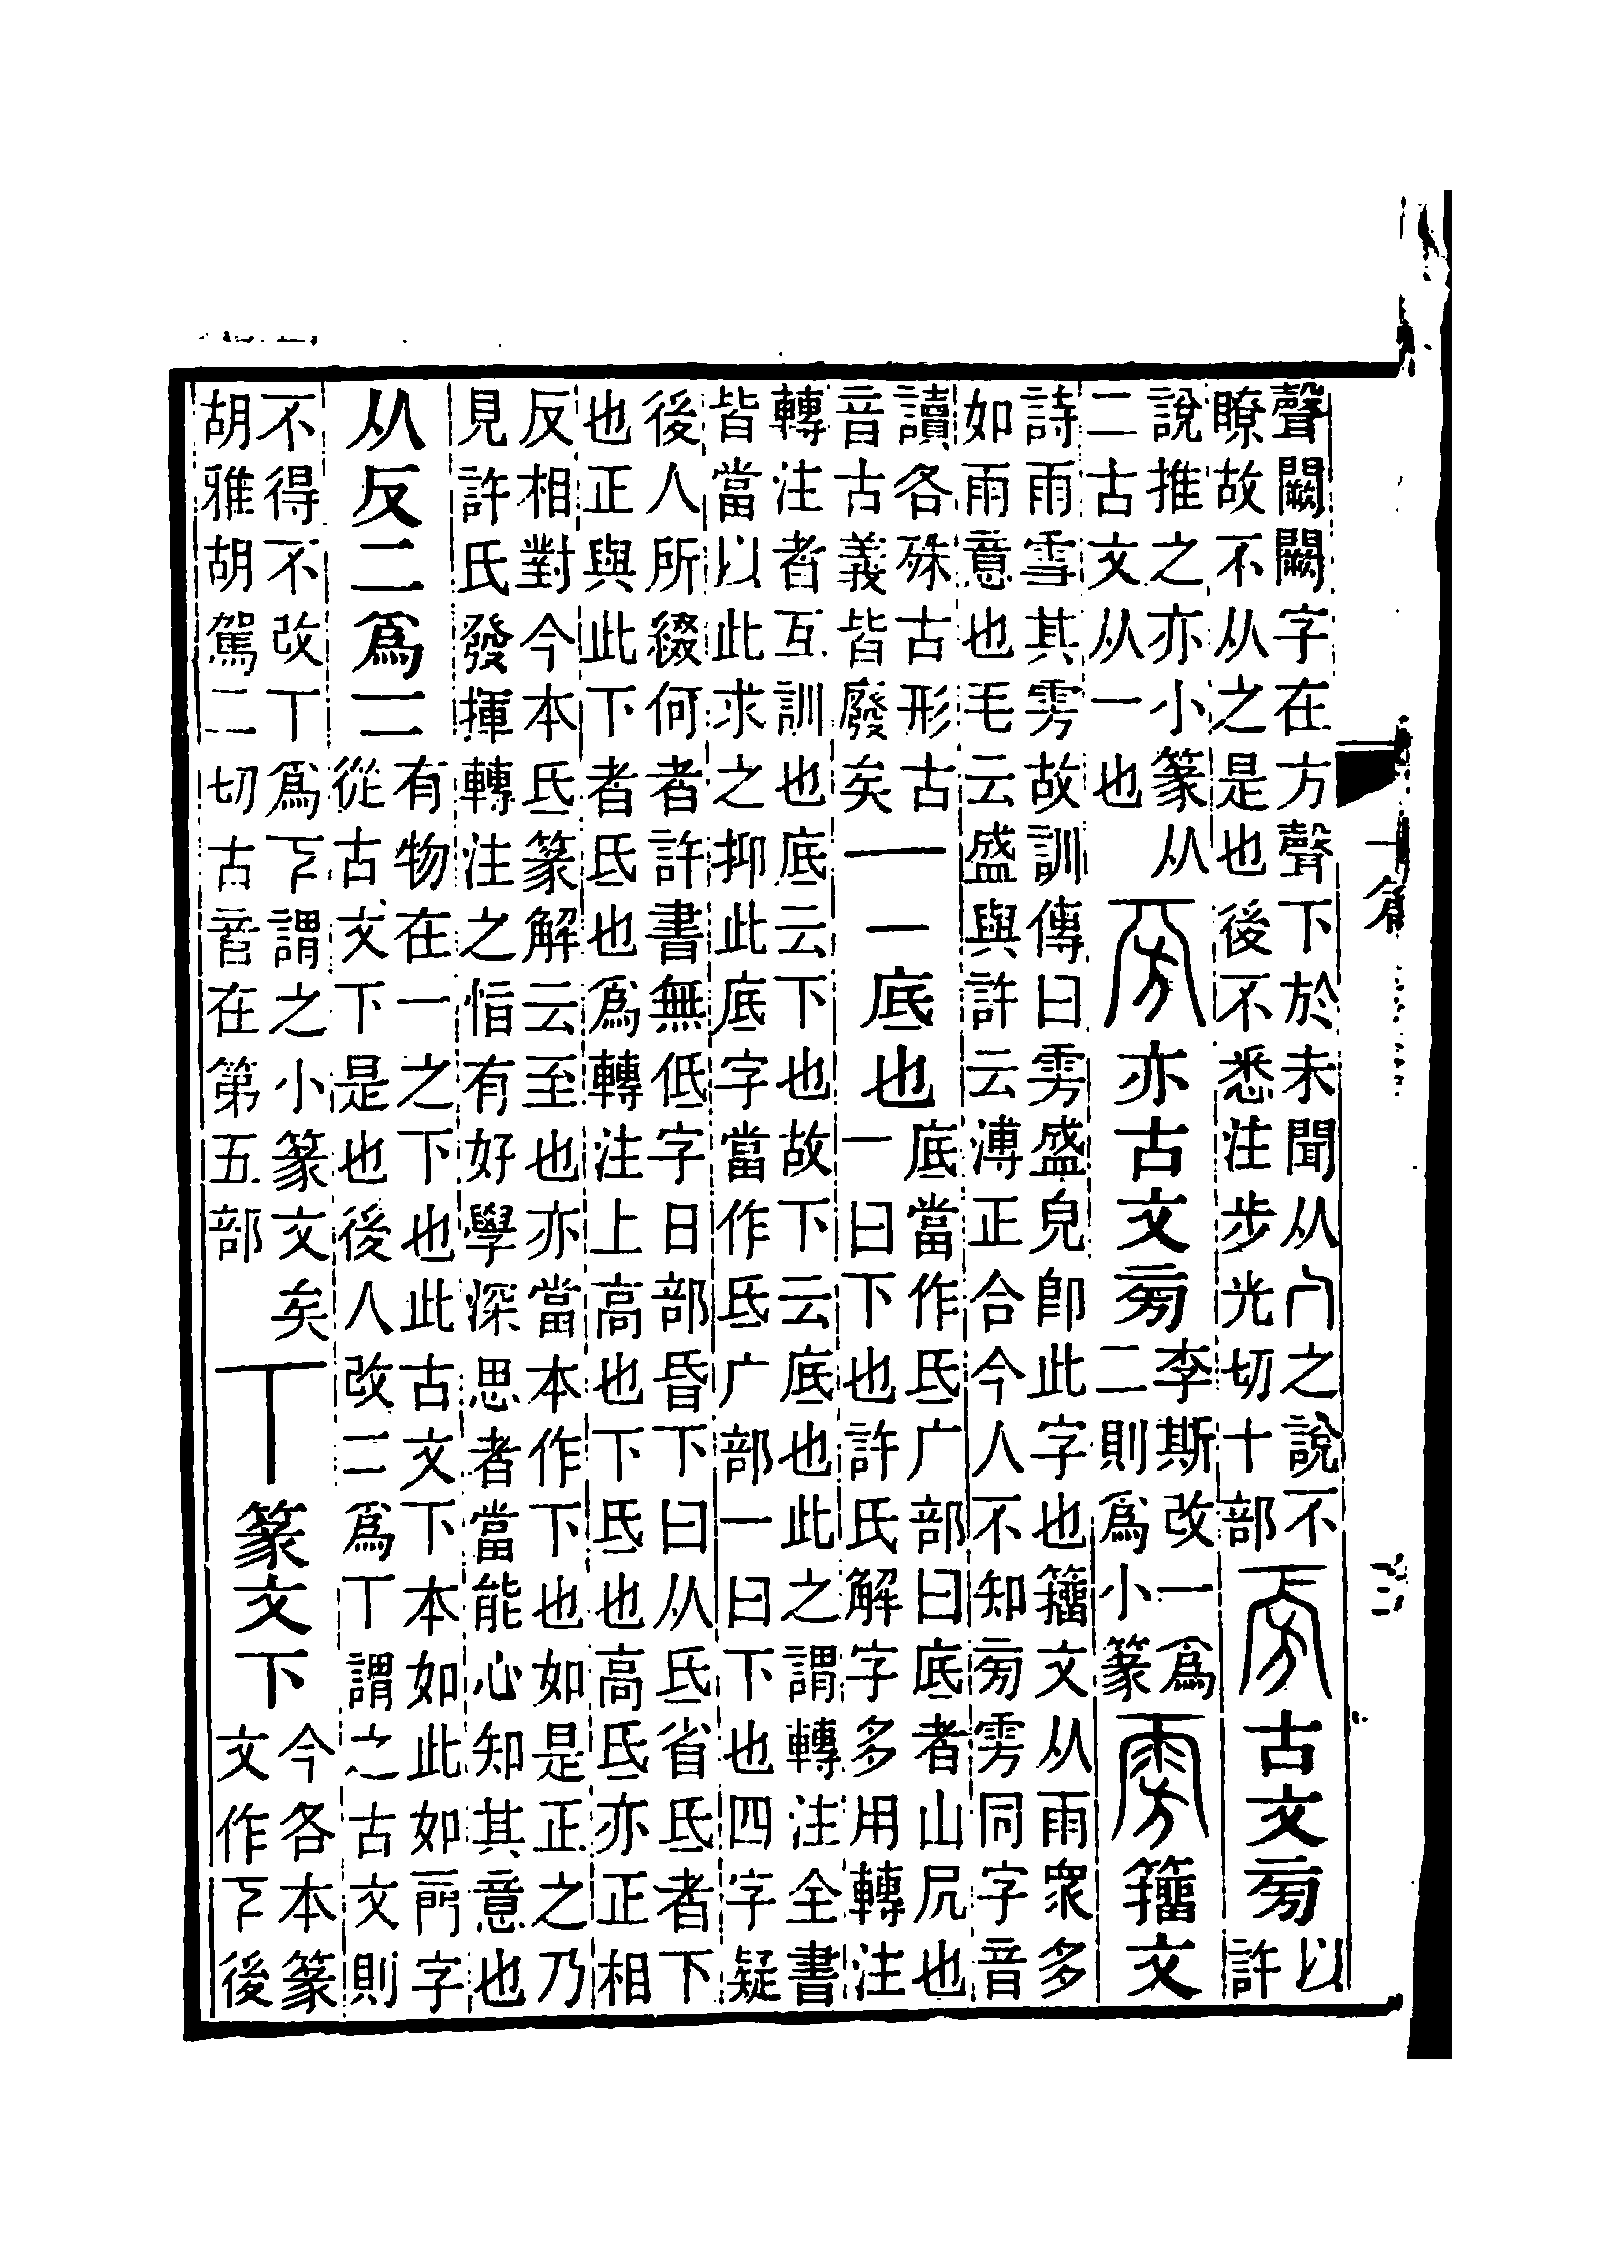 聲闕闕字在方聲下於未聞从之說不
瞭故不从之是也後不悉注步光切十部
古文㫄
以
許
說推之亦小篆从
二古文从一也
亦古文㫄
李斯改一爲
二則爲小篆
籒文
詩雨雪其雱故訓傳曰雱盛皃卽此字也籒文从雨衆多
如雨意也毛云盛與許云溥正合今人不知㫄雱同字音
讀各殊古形古
音古義皆廢矣
一 一底也
底當作氐广部曰底者山凥也
一曰下也許氏解字多用轉注
轉注者互訓也底云下也故下云底也此之謂轉注全書
皆當以此求之抑此底字當作氐广部一曰下也四字疑
後人所綴何者許書無低字日部昏下曰从氐省氐者下
也正與此下者氐也爲轉注上高也下氐也高氐亦正相
反相對今本氐篆解云至也亦當本作下也如是正之乃
見許氏發揮轉注之恉有好學深思者當能心知其意也
从反二爲二
有物在一之下也此古文下本如此如字
從古文下是也後人改二爲丅謂之古文則
不得不改丅爲𠄟謂之小篆文矣
胡雅胡駕二切古音在第五部
丅 篆文下
今各本篆
文作𠄟後
一篇